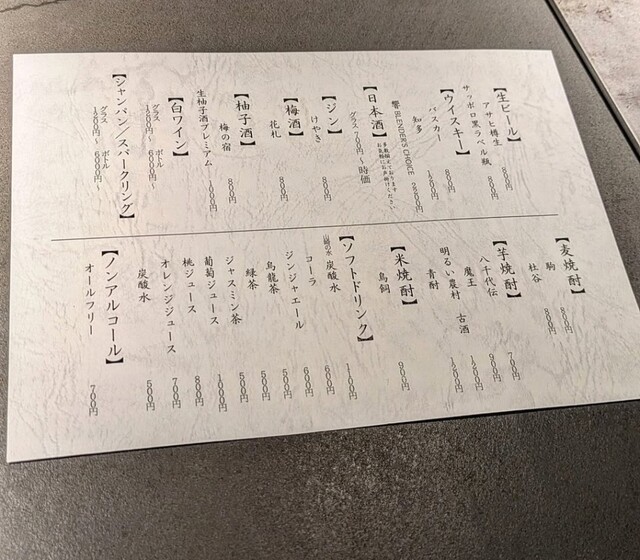 【生ビール】
アサヒ樽生 800円
サッポロ黒ラベル瓶 800円
【ウイスキー】
バスカー 800円
知多
響 BLENDER'S CHOICE
【日本酒】
多数揃えております
お気軽にお声掛けください
グラス 700円〜時価
【ジン】
けやき 800円
【梅酒】
花札 800円
【柚子酒】
梅の宿 800円
生柚子酒プレミアム 1000円
【白ワイン】
グラス 1200円〜 ボトル 6000円〜
【シャンパン/スパークリング】
グラス 1200円〜 ボトル 6000円〜
【麦焼酎】
駒 800円
杜谷 800円
【芋焼酎】
八千代伝 700円
魔王 900円
明るい農村 古酒 1200円
青酎 1200円
【米焼酎】
鳥飼 900円
【ソフトドリンク】
山崎の水 炭酸水 1100円
コーラ 600円
ジンジャエール 600円
烏龍茶 500円
緑茶 500円
ジャスミン茶 500円
葡萄ジュース 1000円
桃ジュース 800円
オレンジジュース 700円
炭酸水 500円
【ノンアルコール】
オールフリー 700円